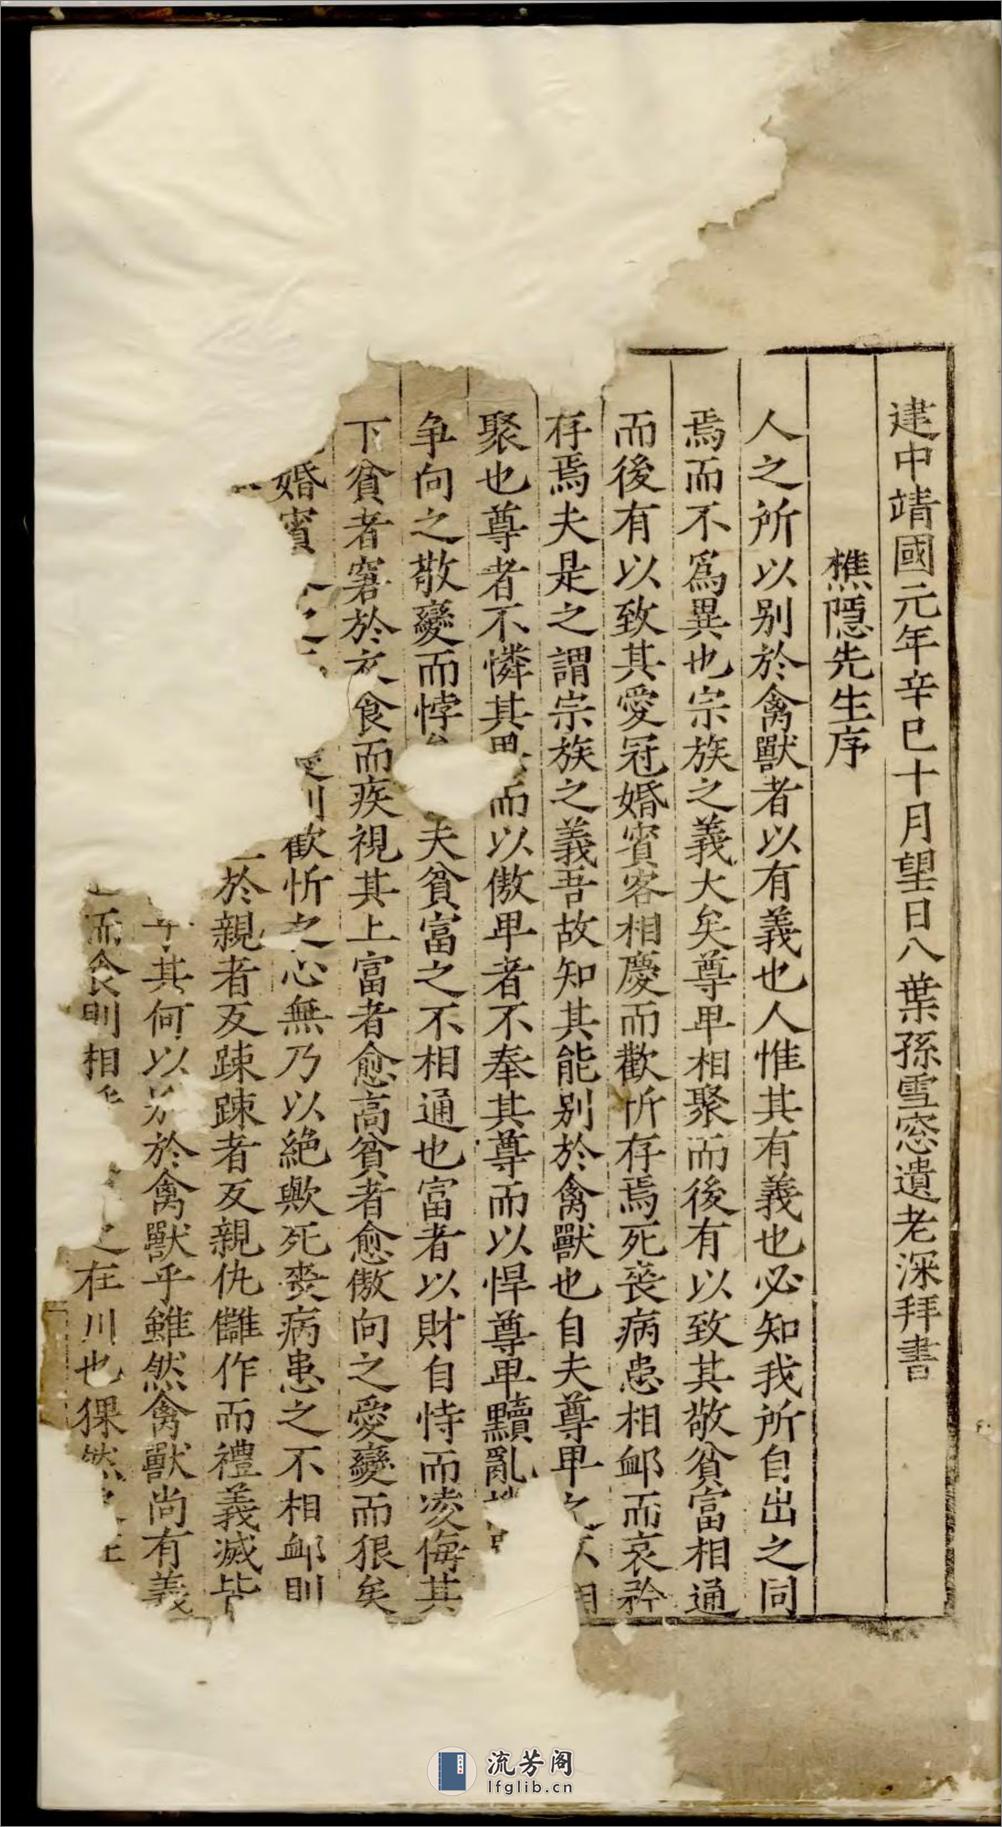 建中靖國元年辛巳十月望日八葉孫雪窓遺老深拜書
樵隱先生序
人之所以别於禽獸者以有義也人惟其有義也必知我所自出之同
焉而不爲異也宗族之義大矣尊卑相聚而後有以致其敬貧富相通
而後有以致其愛冠婚賓客相慶而歡忻存焉死丧病患相䘏而哀矜
存焉夫是之謂宗族之義吾故知其能别於禽獸也自夫尊卑之不相
聚也尊者不憐其而以傲卑者不奉其尊而以悍尊卑黷亂
争向之敬變而悖夫貧富之不相通也富者以財自恃而凌侮其
下貧者窘於衣食而疾視其上富者愈高貧者愈傲向之愛變而狠矣
婚賓之歡忻之心無乃以絶歟死丧病患之不相䘏則
於親者反踈踈者反親仇讎作而禮義滅
其何以於禽獸乎雖然禽獸尚有義
而食則相之在川也猓然
流芳阁
lfglib.cn